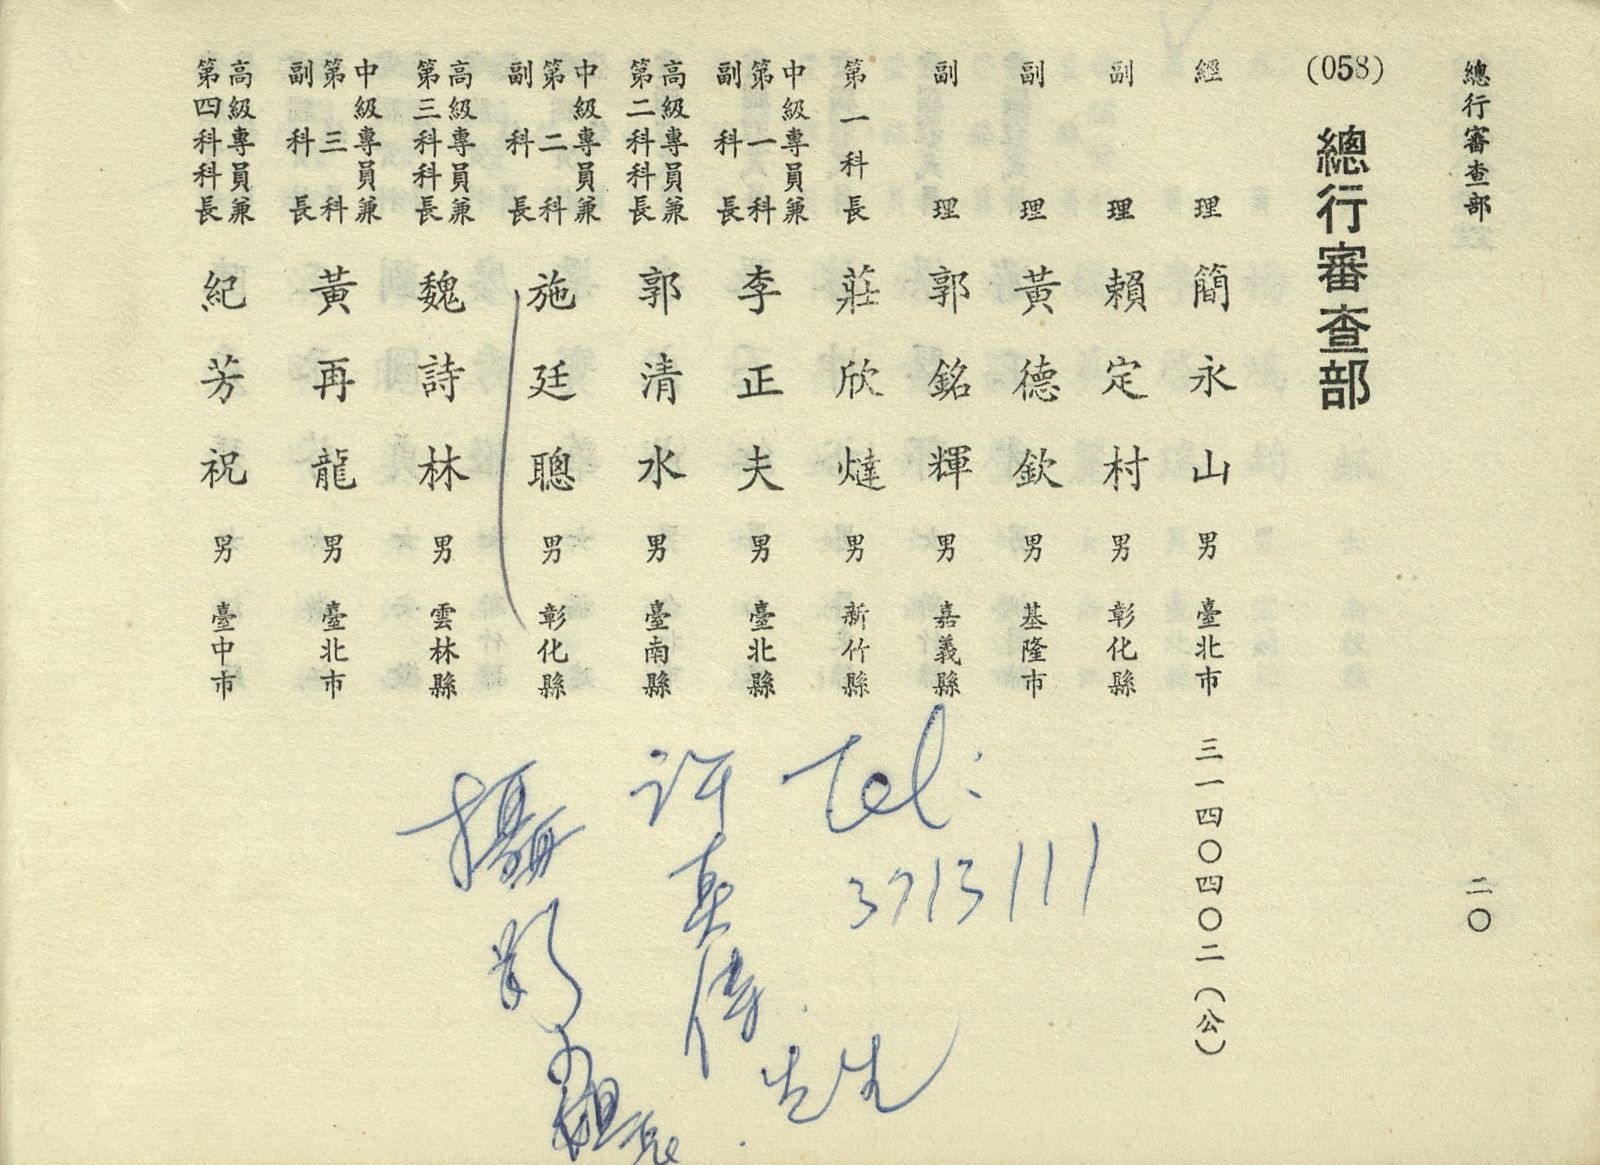 總行審查部
二〇
(058) 總行審查部
經理 簡永山 男 臺北市 三一四〇四〇二(公)
副理 賴定村 男 彰化縣
副理 黃德欽 男 基隆市
副理 郭銘輝 男 嘉義縣
第一科長 莊欣燵 男 新竹縣
中級專員兼第一科副科長 李正夫 男 臺北縣
高級專員兼第二科科長 郭清水 男 臺南縣
中級專員兼第二科副科長 施廷聰 男 彰化縣
高級專員兼第三科科長 魏詩林 男 雲林縣
中級專員兼第三科副科長 黃再龍 男 臺北市
高級專員兼第四科科長 紀芳祝 男 臺中市
Tel:
3713111
許 先生
攝影小組長